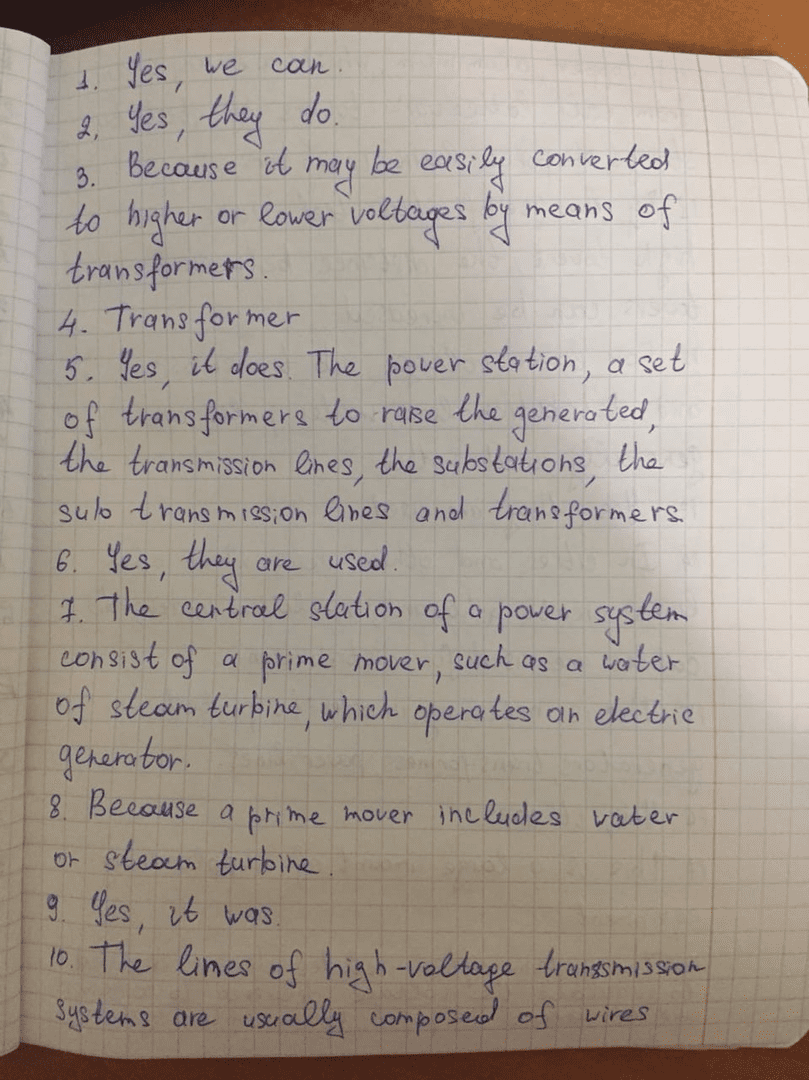 1. Yes, we can.
2, Yes, they do.
3. Because it may be easily converted
to higher or lower voltages by means of
transformers.
4. Transformer
5. Yes, it does. The pover station, a set
of transformers to raise the generated,
the transmission lines, the substations, the
sub transmission lines and transformers.
6. Yes, they are used.
7. The central station of a power system
consist of a prime mover, such as a water
of steam turbine, which operates an electric
generator.
8. Because a prime mover includes vater
or steam turbine.
9. Yes, it was.
10. The lines of high-voltage transsmission
systems are usually composed of wires